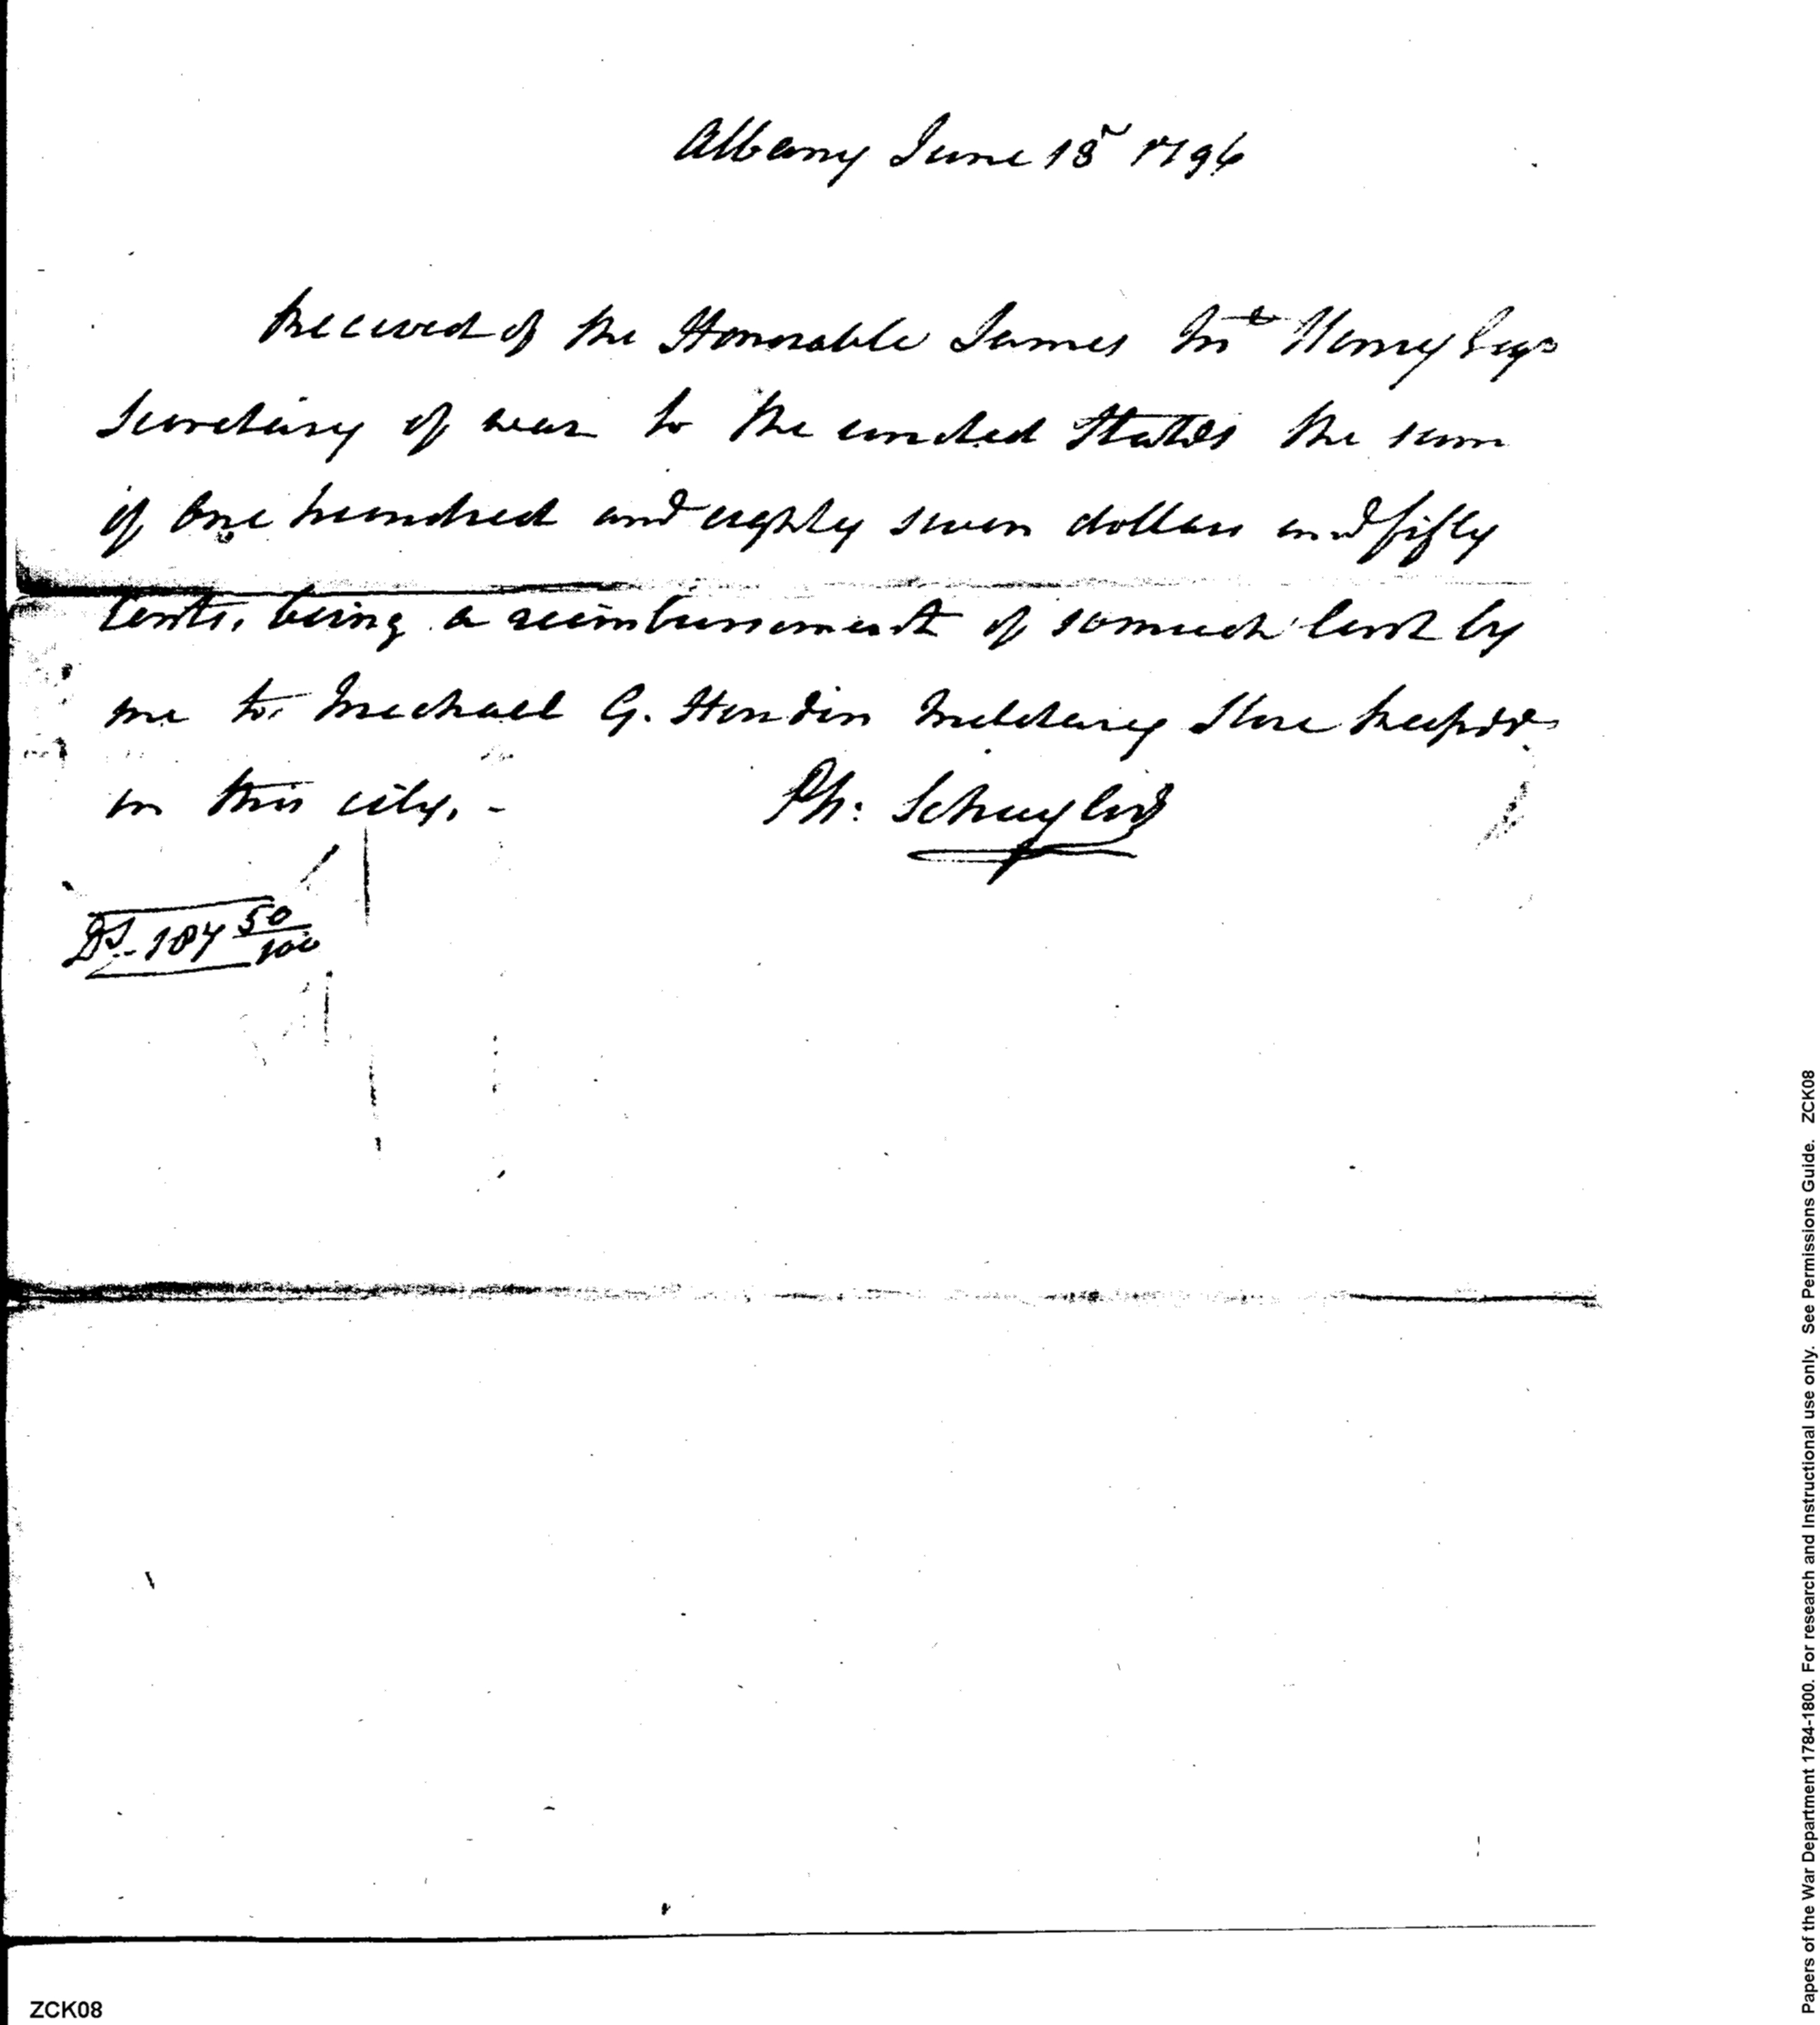 Albany June 18 1796
Received of the Honorable James Mc Henry Esqr
Secretary of war to the united States the sum
of One hundred and eighty seven dollars and fifty
Cents, being a reimbursement of somuch lent by
me to Michael G. Houdin Military Store keeper
in this city. -
Ph: Schuyler
Ds. 187 50/100
Papers of the War Department 1784-1800. For research and Instructional use only. See Permissions Guide. ZCK08
ZCK08